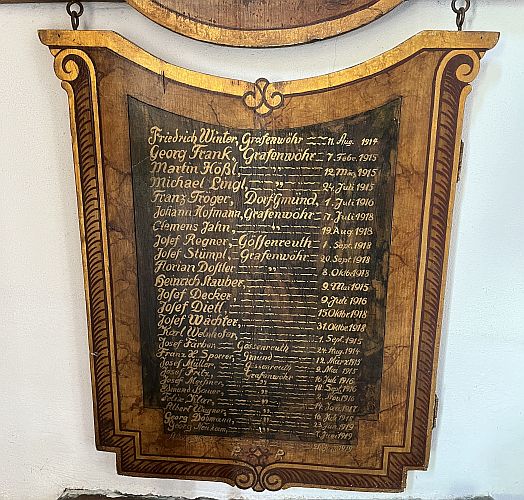 Friedrich Winter, Grafenwöhr 11. Aug. 1914
Georg Frank, Grafenwöhr 7. Febr. 1915
Martin Hößl " 12. März 1915
Michael Lingl " 24. Juli 1915
Franz Tröger, Dorf Gmünd, 1. Juli 1916
Johann Hofmann, Grafenwöhr 17. Juli 1918
Clemens Jahn, " 19. Aug. 1918
Josef Regner, Gössenreuth 1. Sept. 1918
Josef Stümpl, Grafenwöhr 20. Sept. 1918
Florian Dostler " 8. Oktbr. 1918
Heinrich Stauber, 9. Mai 1915
Josef Decker, 9. Juli 1916
Josef Dietl 15. Oktbr. 1918
Josef Wächter, 31. Oktbr. 1918
Karl Weinhofer 1. Sept. 1915
Josef Färber, Gössenreuth 24. Aug. 1914
Franz X. Sporrer, Gmünd 12. März 1915
Josef Müller, Gössenreuth 9. Mai 1915
Josef Fritz, Grafenwöhr 10. Juli 1916
Josef " 18. Sept. 1916
Bauer, " 2. Nov. 1916
" 14. Juli 1917
Albert Wagner, " 16. Juli 1915
Georg " 23. Jun. 1919
Georg " 7. Juni 1919